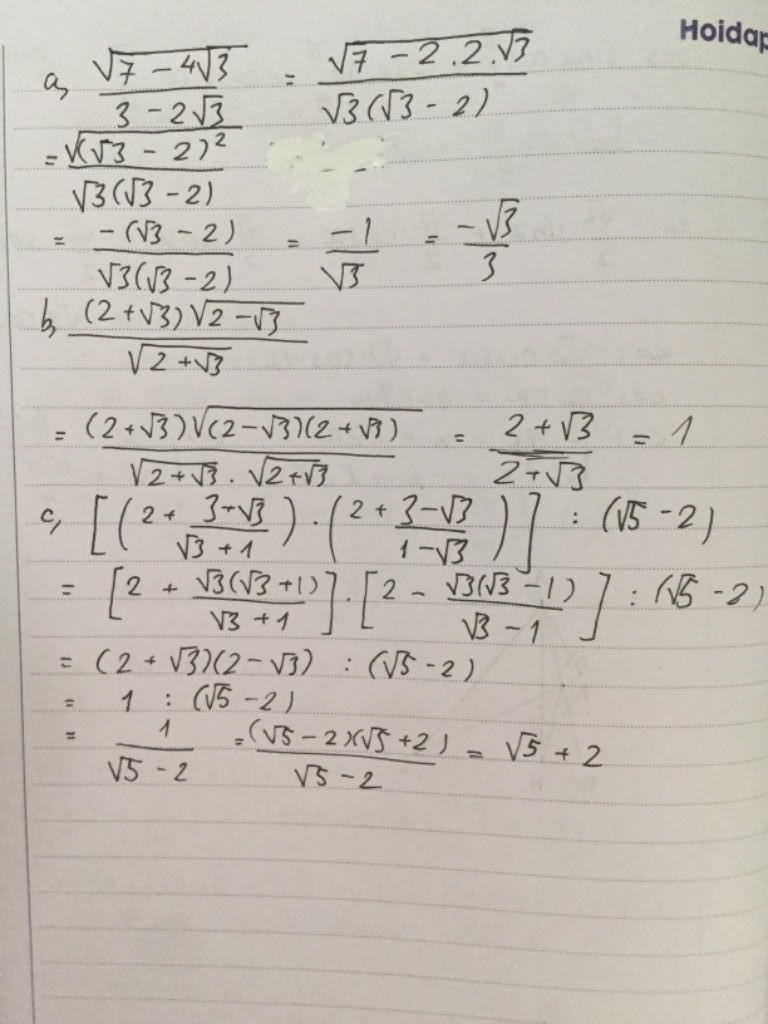 Hoidap
a, √(7 - 4√3) / (3 - 2√3) = √(7 - 2.2.√3) / (√3(√3 - 2))
= √((√3 - 2)²) / (√3(√3 - 2))
= -(√3 - 2) / (√3(√3 - 2)) = -1/√3 = -√3/3
b, (2 + √3)√(2 - √3) / √(2 + √3)
= (2 + √3)√((2 - √3)(2 + √3)) / (√(2 + √3) . √(2 + √3)) = (2 + √3)/(2 + √3) = 1
c, [(2 + (3 + √3)/(√3 + 1)) . (2 + (3 - √3)/(1 - √3))] : (√5 - 2)
= [2 + √3(√3 + 1)/(√3 + 1)] . [2 - √3(√3 - 1)/(√3 - 1)] : (√5 - 2)
= (2 + √3)(2 - √3) : (√5 - 2)
= 1 : (√5 - 2)
= 1/(√5 - 2) = (√5 - 2)(√5 + 2)/(√5 - 2) = √5 + 2